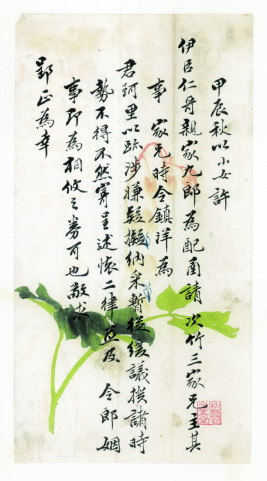 甲辰秋以小女許
伊臣仁哥親家九郎為配因請次竹三家兄主其
事家兄時令鎮洋為
君珂里以跡涉嫌疑擬納采暫從緩議揆諸時
勢不得不然寄呈述懷二律並及令郎姻
事即為相攸之券可也敬求
郢正為幸